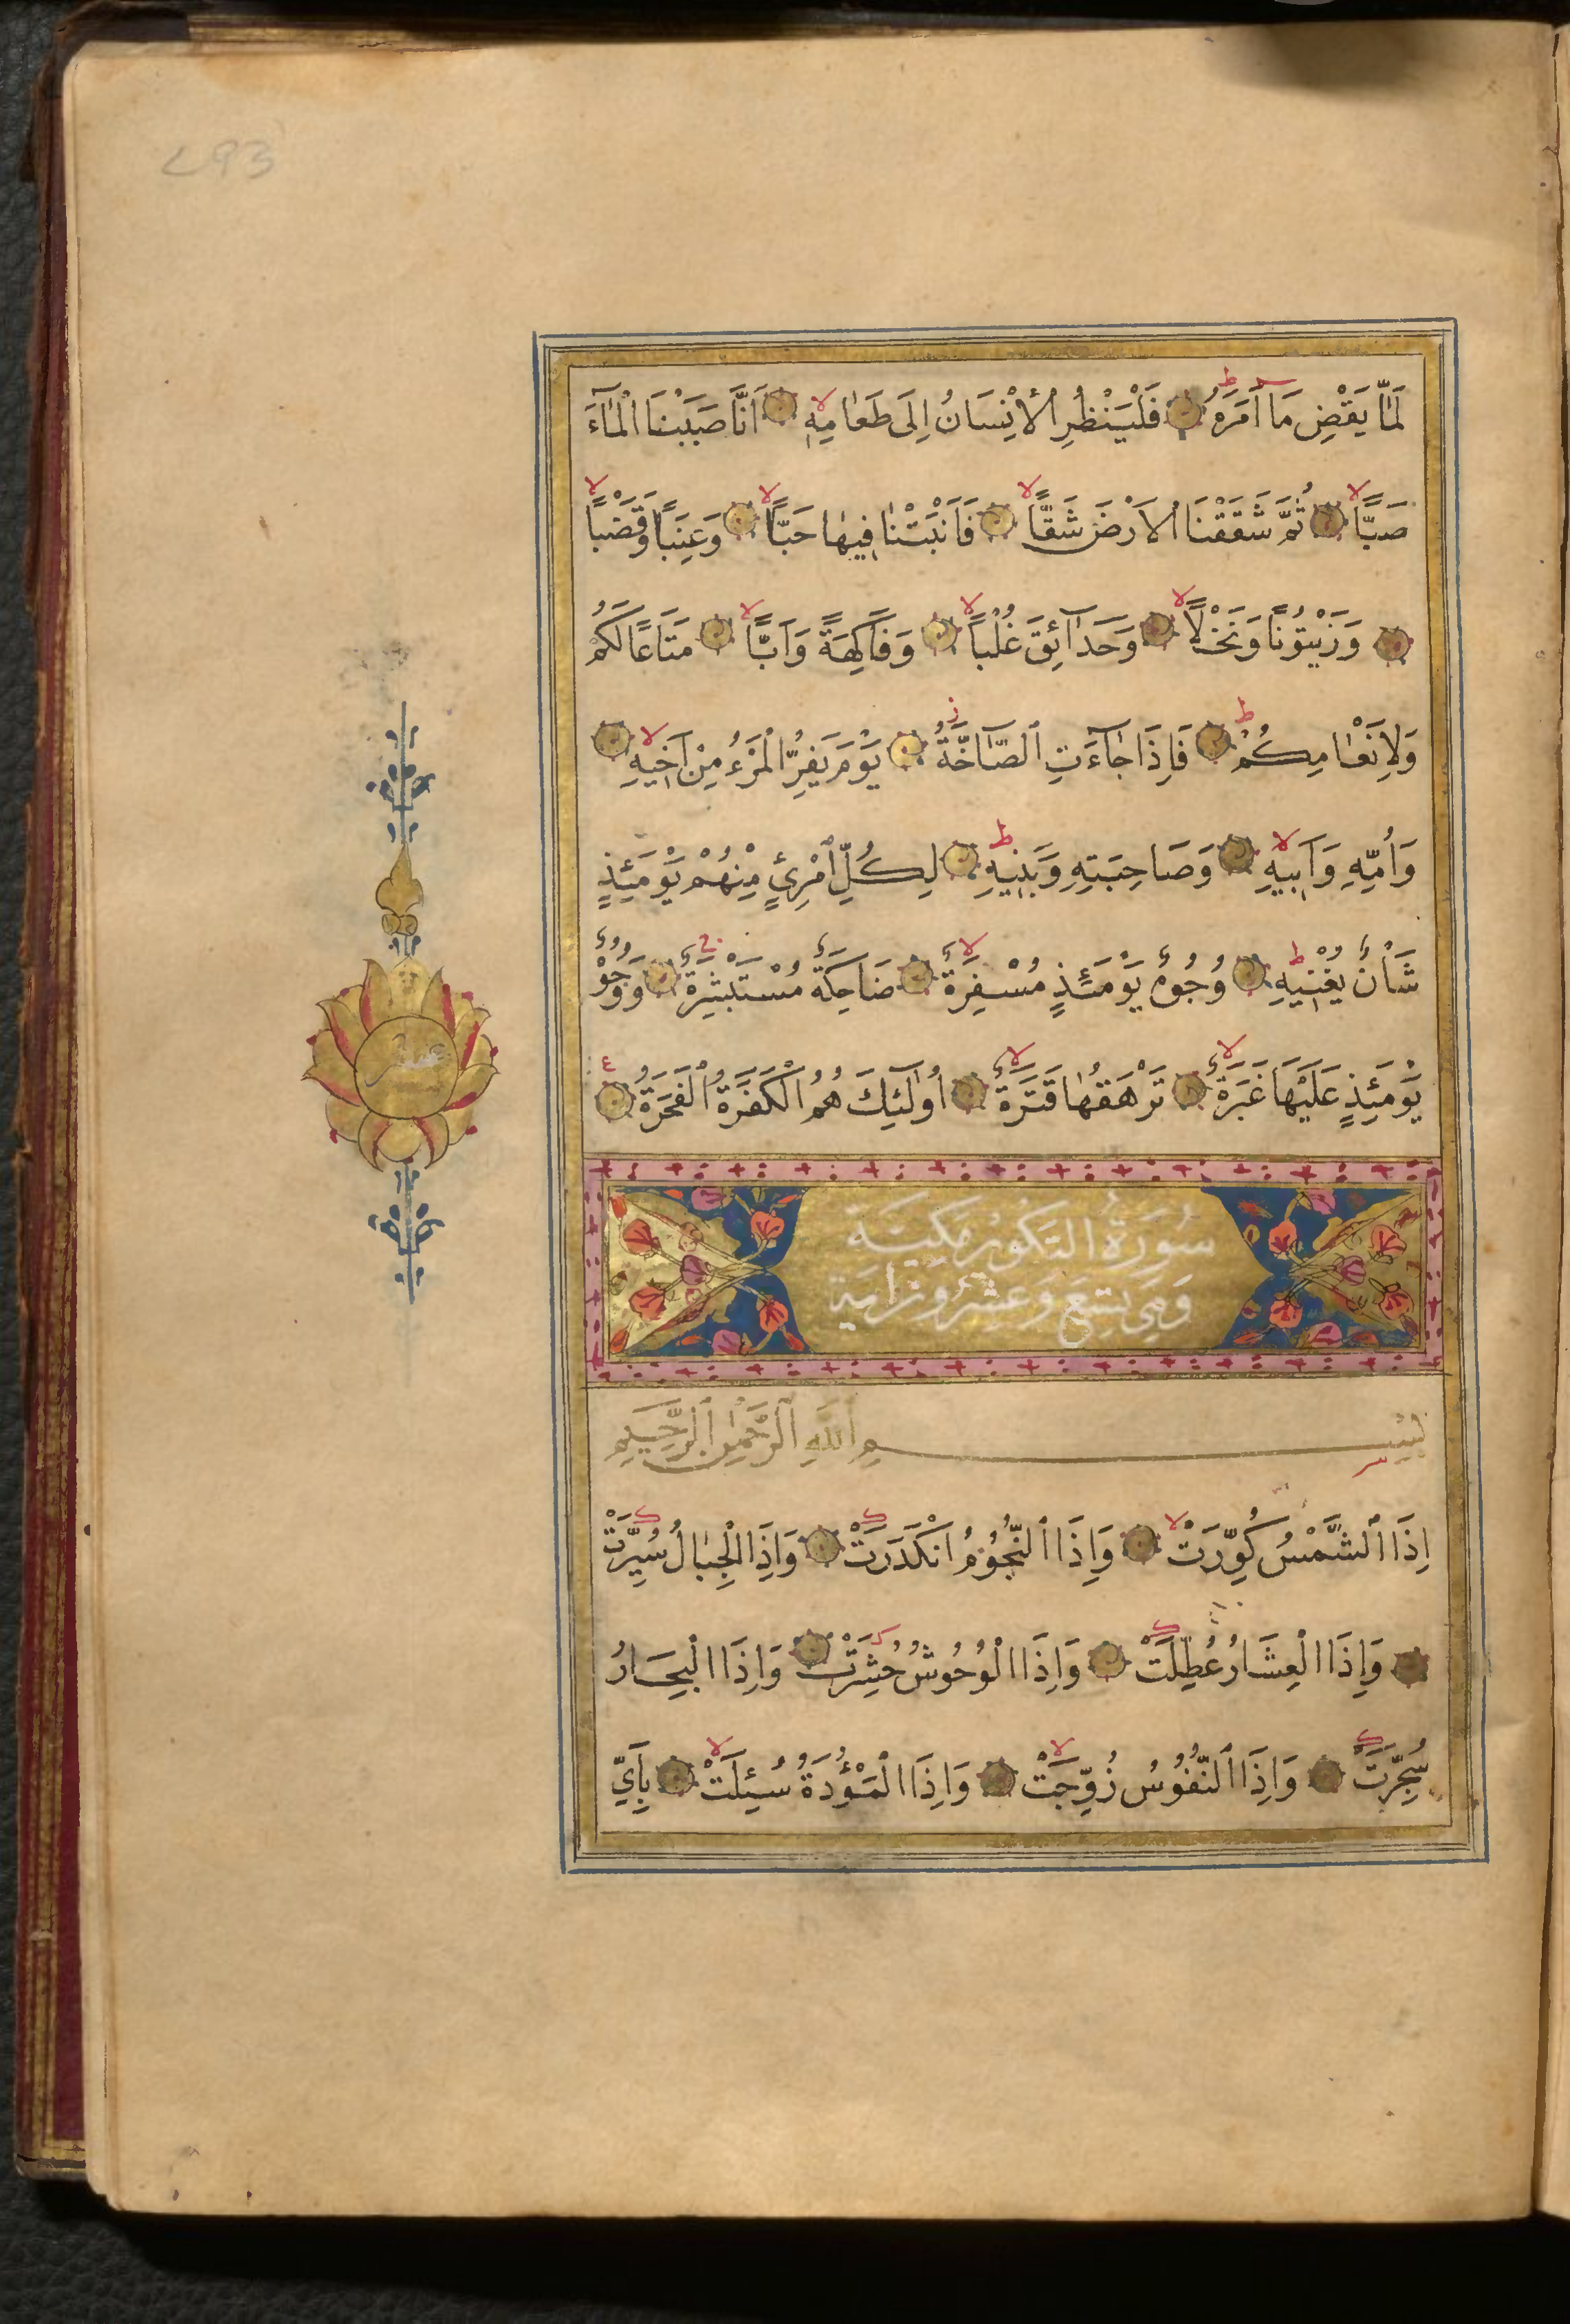 293
لَمَّا يَقْضِ مَا اَمَرَهُ ط فَلْيَنْظُرِ الْاِنْسَانُ اِلَى طَعَامِهٖ لا اَنَّا صَبَبْنَا الْمَآءَ
صَبًّا لا ثُمَّ شَقَقْنَا الْاَرْضَ شَقًّا لا فَاَنْبَتْنَا فِيهَا حَبًّا لا وَعِنَبًا وَقَضْبًا لا
وَزَيْتُونًا وَنَخْلًا لا وَحَدَآئِقَ غُلْبًا لا وَفَاكِهَةً وَاَبًّا لا مَتَاعًا لَكُمْ
وَلِاَنْعَامِكُمْ ط فَاِذَا جَآءَتِ الصَّآخَّةُ ز يَوْمَ يَفِرُّ الْمَرْءُ مِنْ اَخِيهِ لا
وَاُمِّهِ وَاَبِيهِ لا وَصَاحِبَتِهِ وَبَنِيهِ ط لِكُلِّ امْرِئٍ مِنْهُمْ يَوْمَئِذٍ
شَاْنٌ يُغْنِيهِ ط وُجُوهٌ يَوْمَئِذٍ مُسْفِرَةٌ لا ضَاحِكَةٌ مُسْتَبْشِرَةٌ ج وَوُجُوهٌ
يَوْمَئِذٍ عَلَيْهَا غَبَرَةٌ لا تَرْهَقُهَا قَتَرَةٌ لا اُولٰٓئِكَ هُمُ الْكَفَرَةُ الْفَجَرَةُ ع
عشر
سُورَةُ التَكوير مَكيَّة
وَهِيَ تِسْعَ وَعِشْرُونَ اٰية
بِسْمِ اللهِ الرَّحْمٰنِ الرَّحِيمِ
اِذَا الشَّمْسُ كُوِّرَتْ لا وَاِذَا النُّجُومُ انْكَدَرَتْ ك وَاِذَا الْجِبَالُ سُيِّرَتْ ك
وَاِذَا الْعِشَارُ عُطِّلَتْ ك وَاِذَا الْوُحُوشُ حُشِرَتْ ك وَاِذَا الْبِحَارُ
سُجِّرَتْ ك وَاِذَا النُّفُوسُ زُوِّجَتْ لا وَاِذَا الْمَوْؤُدَةُ سُئِلَتْ لا بِاَيِّ